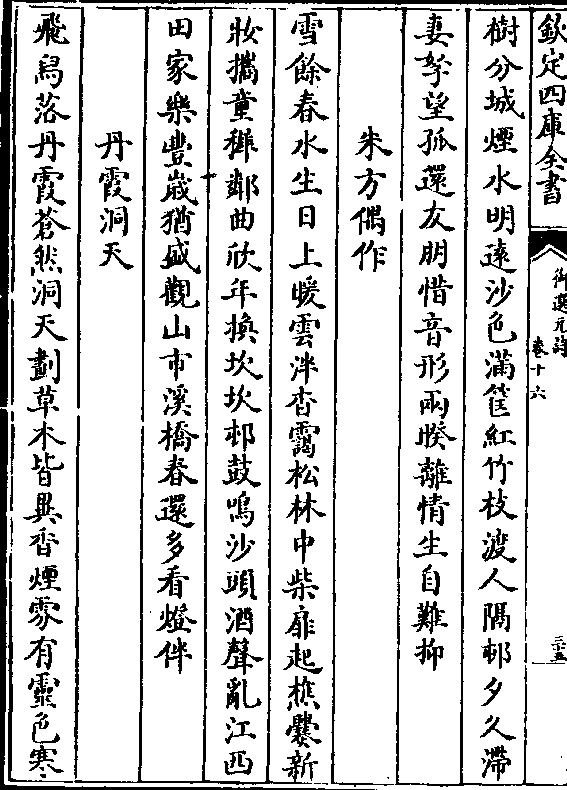 欽定四庫全書
御選元詩
卷十六
三十五
樹分城煙水明遠沙色滿筐紅竹枝渡人隔邨夕久滯
妻孥望孤還友朋惜音形兩暌離情生自難抑
朱方偶作
雪餘春水生日上暖雲泮杳靄松林中柴扉起樵爨新
妝攜童穉鄰曲欣年換坎坎邨鼓鳴沙頭酒聲亂江西
田家樂豐歲猶盛觀山市溪橋春還多看燈伴
丹霞洞天
飛舄落丹霞蒼然洞天劃草木皆異香煙霧有靈色寒